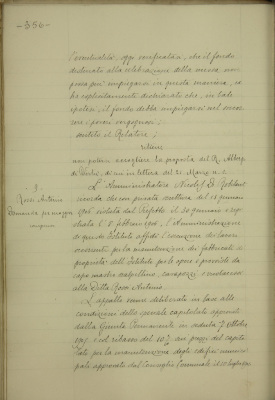 - 356 -
l'eventualità, oggi verificatasi, che il fondo
destinato alla celebrazione della messa, non
possa più impiegarsi in questa maniera, ed
ha esplicitamente dichiarato che, in tale
ipotesi, il fondo debba impiegarsi nel soccor-
rere i poveri vergognosi;
sentito il Relatore;
non potersi accogliere la proposta del R. Albergo
di cui in lettera del 21 Marzo u.s.
3.
Rossi Antonio
Domanda per maggior
compenso
L'Amministratore Nicolò
ricorda che con privata scrittura del 15 gennaio
1906, vistata dal Prefetto il 30 gennaio e regi-
strata l' 8 febbraio 1906, l'Amministrazione
di questo Istituto affidò l'esecuzione dei lavori
occorrenti per la manutenzione dei fabbricati di
proprietà dell'Istituto per le opere e provviste da
capo mastro scalpellino,
alla Ditta Rossi Antonio.
L'appalto venne deliberato in base alle
condizioni dello speciale capitolato approvato
dalla Giunta Permanente in seduta 7 Ottobre
1905 e col ribasso del 10% sui prezzi del capito-
lato per la manutenzione degli edifici munici-
pali approvato dal Consiglio Comunale il